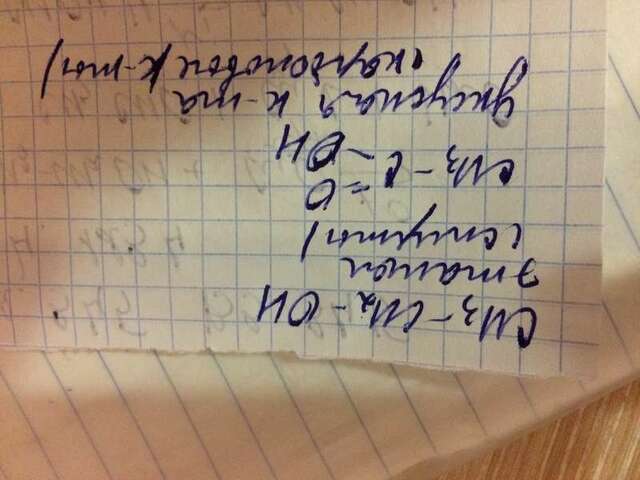 CH3-CH2-OH
этанол
(спирты)
CH3-C=O
-OH
уксусная к-та
(карбоновые к-ты)